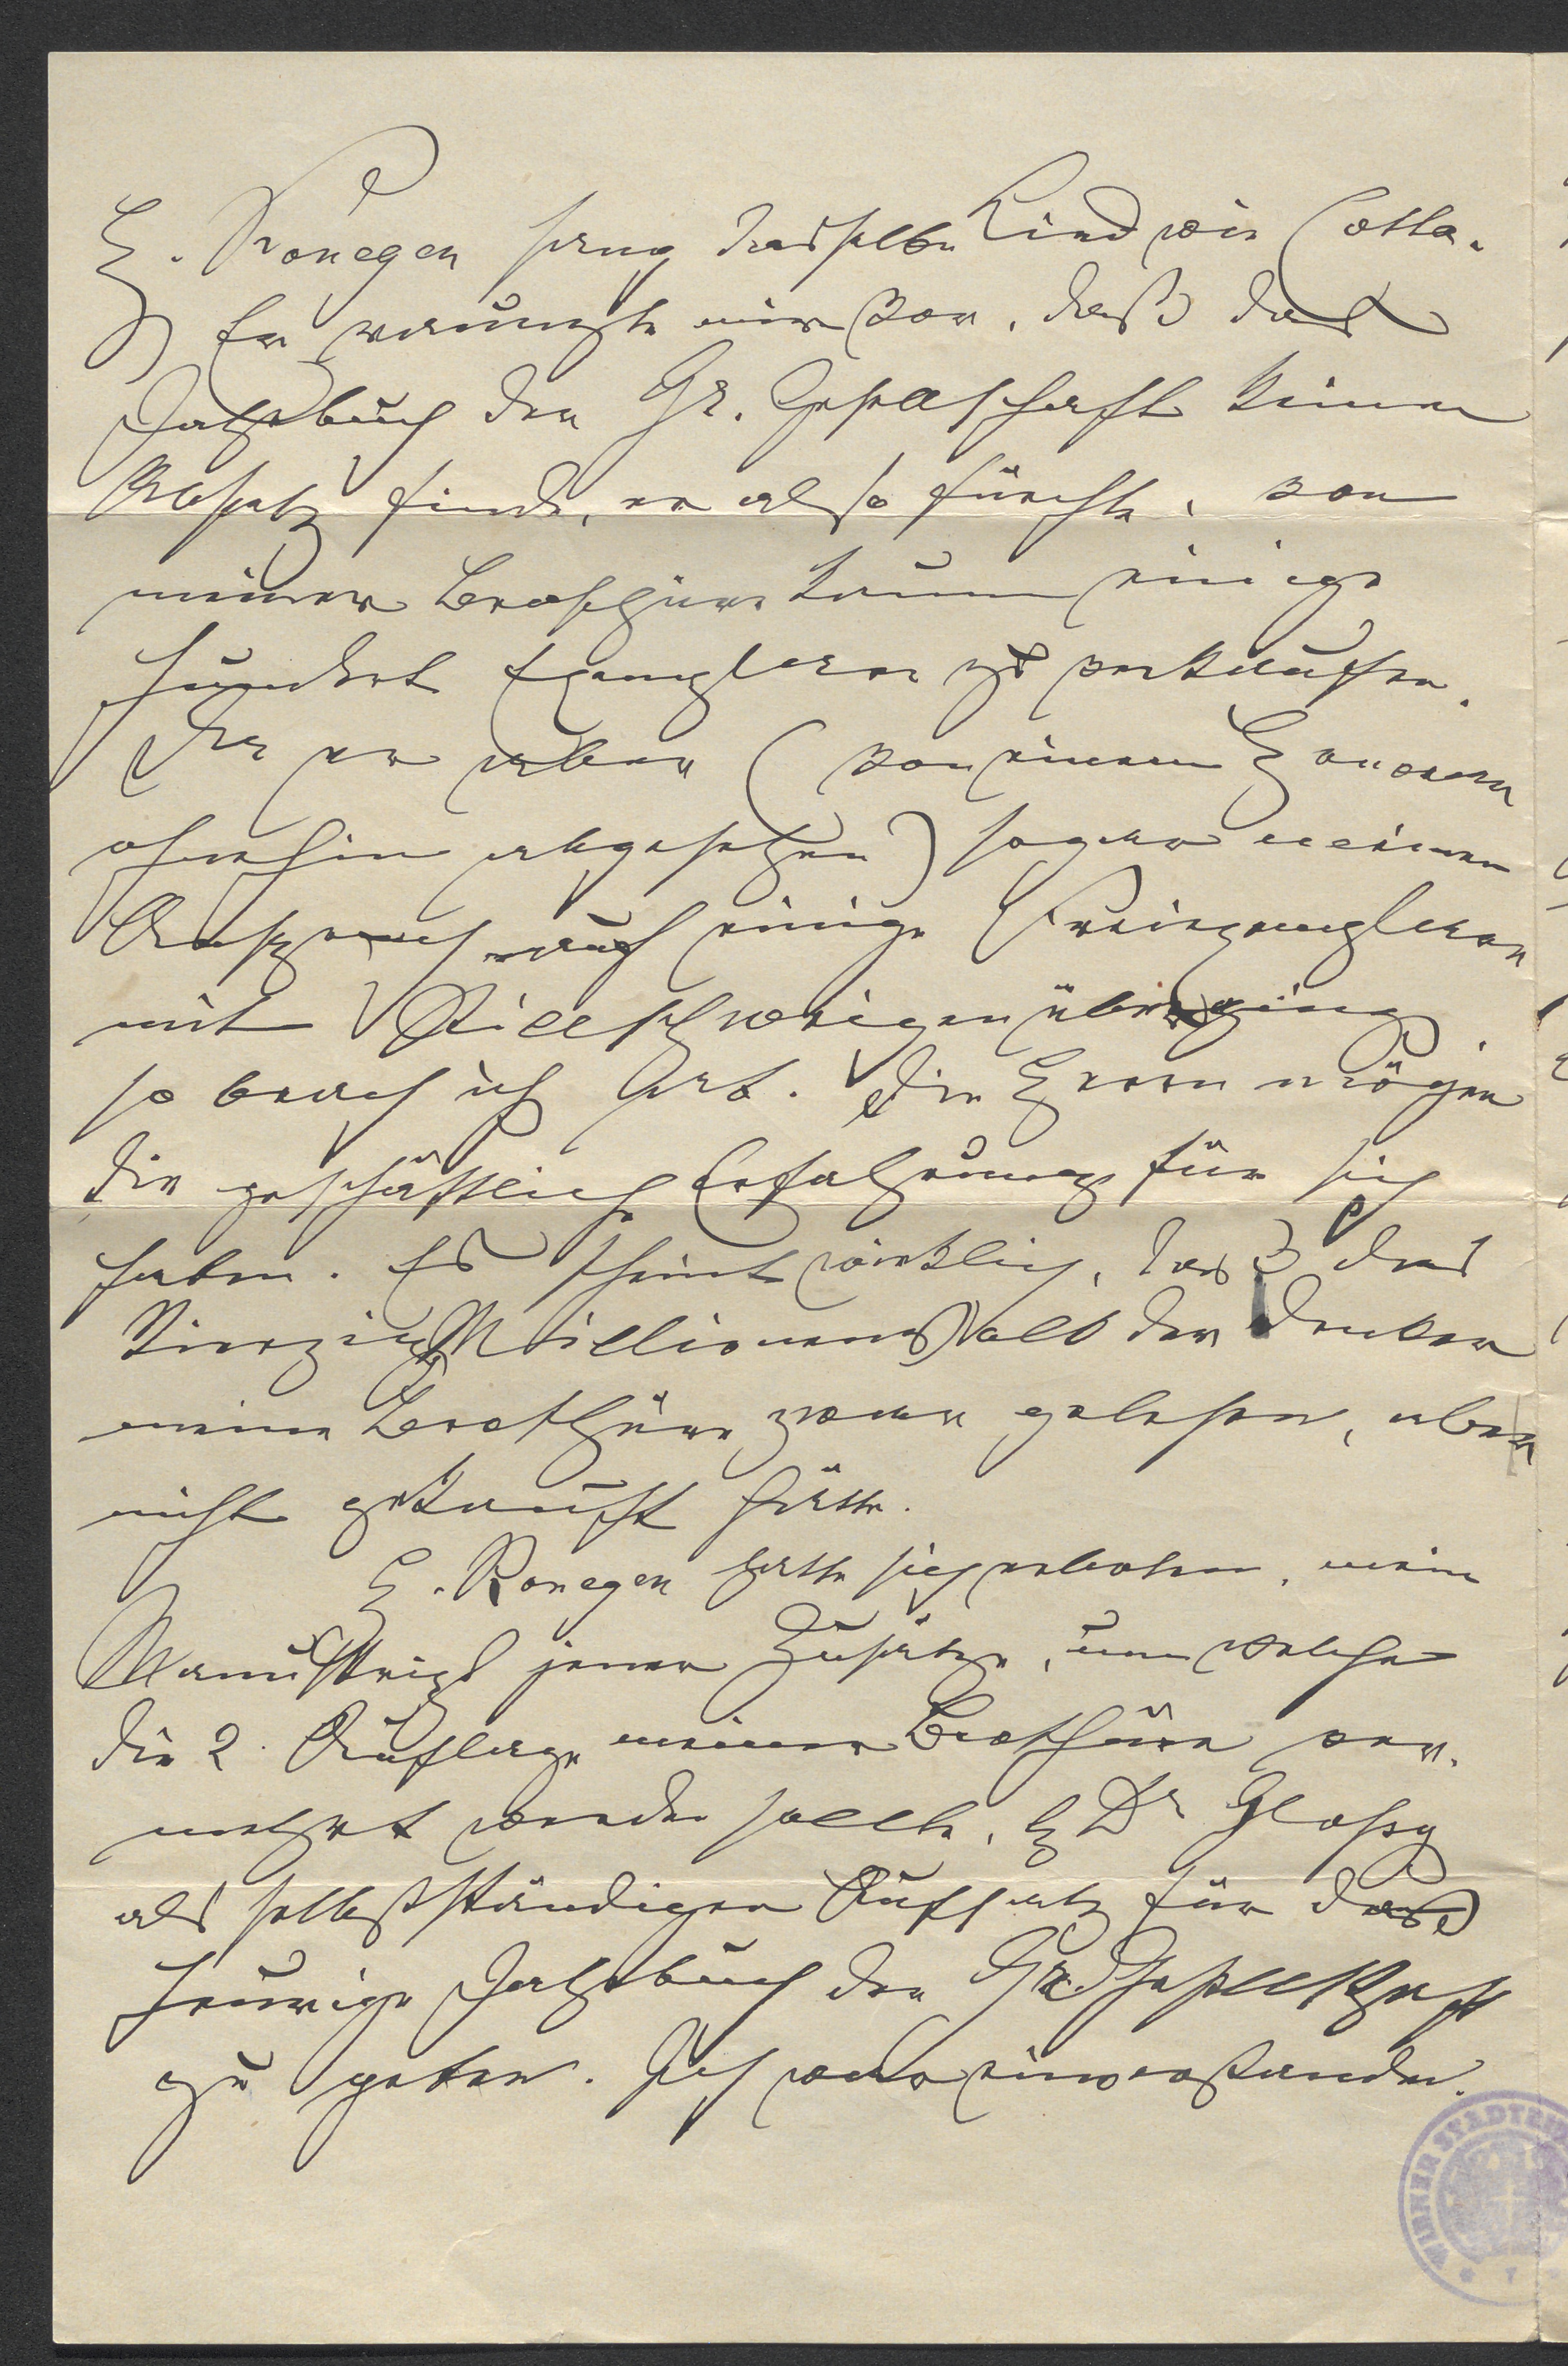 H. Konegen sang dasselbe Lied wie Cotta.
Er raunzte mir vor, daß das
Jahrbuch der Gr. Gesellschaft keinen
Absatz finde, er also fürchte, von
meiner Broschüre kaum einige
hundert Exemplare zu verkaufen.
Da er aber (von einem Honorar
ohnehin abgesehen) sogar meinen
Anspruch auf einige Freiexemplare
mit Stillschweigen überging,
so brach ich ab. Die Herren mögen
die geschäftliche Erfahrung für sich
haben. Es scheint wirklich, daß das
Vierzig Millionenvolk der Denker
meine Broschüre zwar gelesen, aber
nicht gekauft hätte.
H. Konegen hatte sich erboten, mein
Manuskript jener Zusätze, um welche
die 2. Auflage meiner Broschüre ver-
mehrt werden sollte, H Dr Glossy
als selbstständigen Aufsatz für das
heurige Jahrbuch der Gr. Gesellschaft
zu geben. Ich war einverstanden.
WIENER STADT